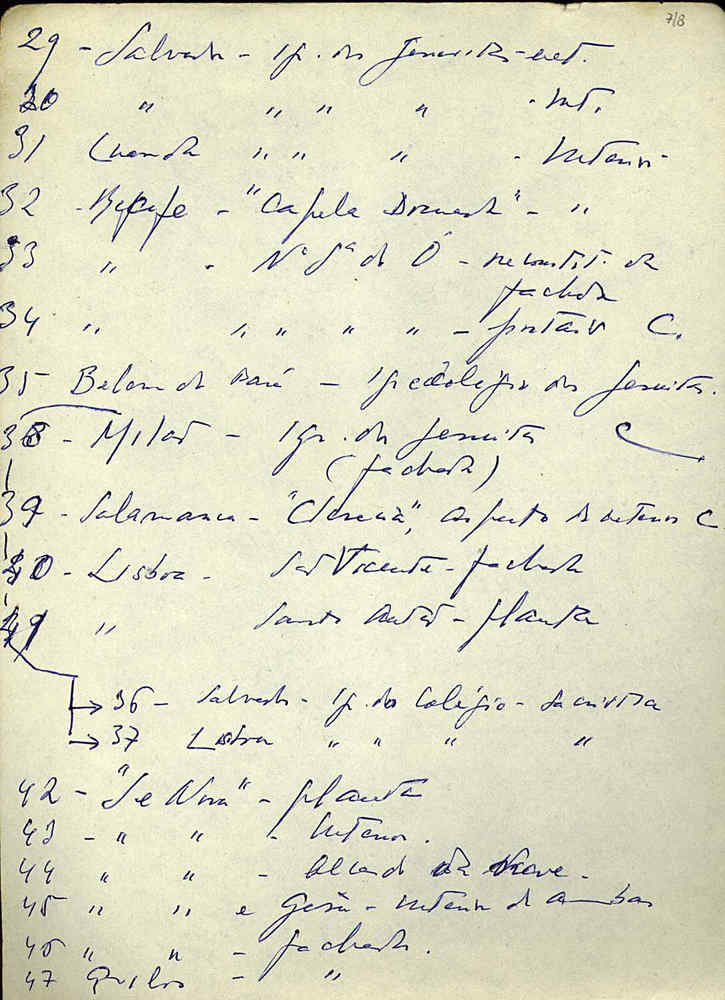 7/8
29 - Salvador - Ig. dos Jesuitas - ext.
30 " " " " - Int.
31 Luanda " " " - Interior
32 - Recife - "Capela Dourada" - "
33 " - Nª Sª do Ó - reconstit. da
fachada
34 " " " " " - frontais C.
35 - Belem do Pará - Ig e Colégio dos Jesuitas.
38 - Milão - Igr. dos Jesuitas C
(fachada)
39 - Salamanca - "Clerecia", aspecto do interior C
40 - Lisboa - São Vicente - fachada
41 " Santo Antão - planta
→ 36 - Salvador - Ig. do Colégio - Sacristia
→ 37 Lisboa " " " "
42 - "Sé Nova" - planta
43 - " " - Interior.
44 " " - da Nave -
45 " " e Gesù - interior de ambas
46 " " - fachada.
47 Grilos - "